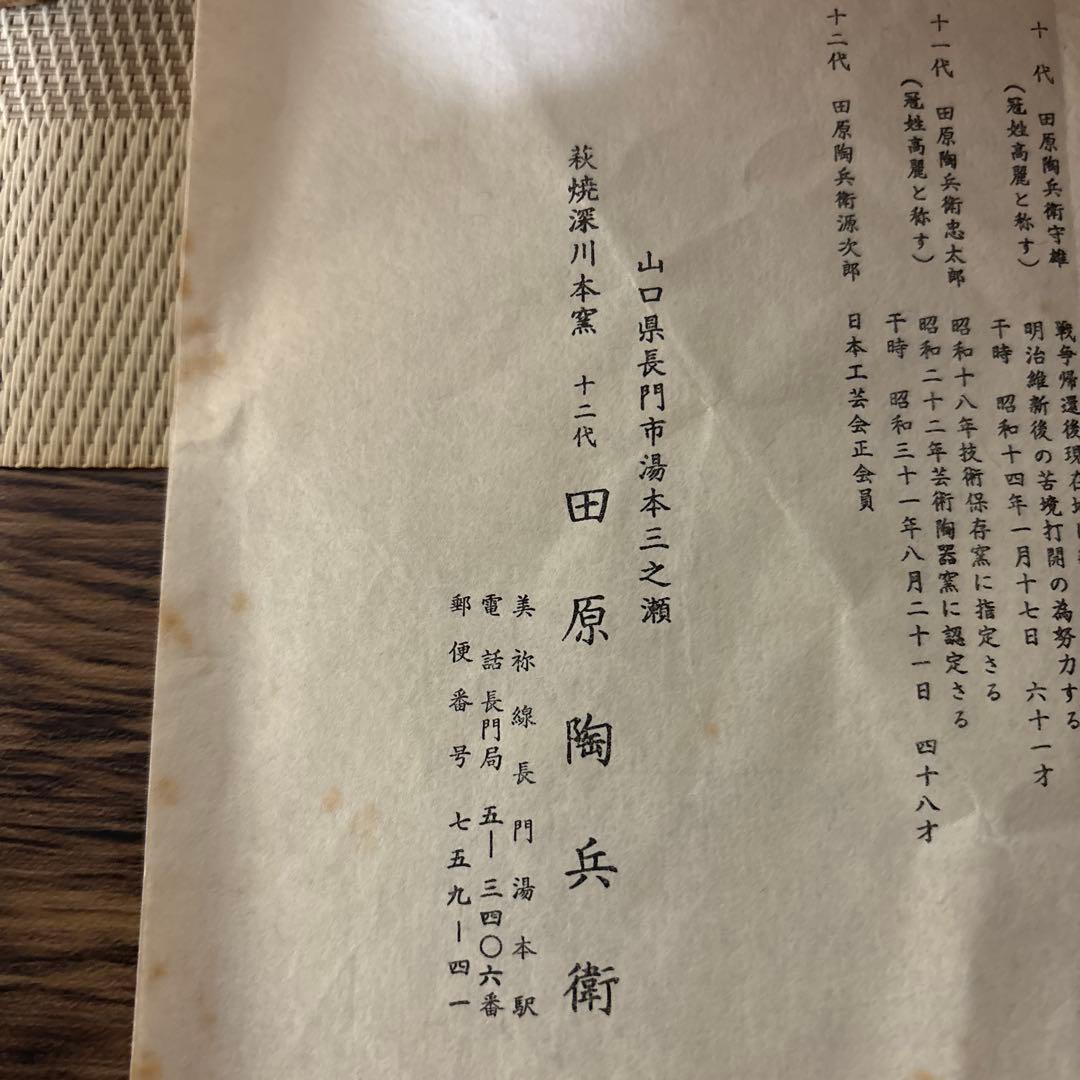 戦争帰還後現在地
十代 田原陶兵衛守雄 明治維新後の苦境打開の為努力する
(冠姓高麗と称す) 干時 昭和十四年一月十七日 六十一才
十一代 田原陶兵衛忠太郎 昭和十八年技術保存窯に指定さる
(冠姓高麗と称す) 昭和二十二年芸術陶器窯に認定さる
干時 昭和三十一年八月二十一日 四十八才
十二代 田原陶兵衛源次郎 日本工芸会正会員
山口県長門市湯本三之瀬
萩焼深川本窯 十二代 田原陶兵衛
美祢線長門湯本駅
電話長門局 五―三四〇六番
郵便番号 七五九―四一